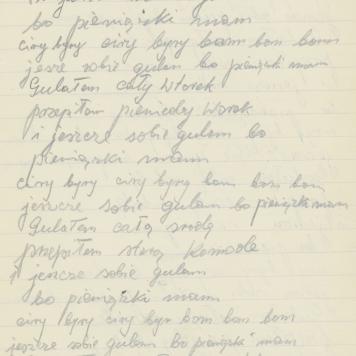 bo pieniążki mam
ciry byry ciry byry bom bom bom
jeszcze sobie gulam bo pieniążki mam
Gulałem cały Wtorek
przepiłam pieniędzy Worek
i jeszcze sobie gulam bo
pieniążki mam
ciry byry ciry byry bom bom bom
jeszcze sobie gulam bo pieniążki mam
Gulałem całą środę
przepiłam starą Komodę
i jeszcze sobie gulam
bo pieniążki mam
ciry byry ciry byr bom bom bom
jeszcze sobie gulam bo pieniążki mam